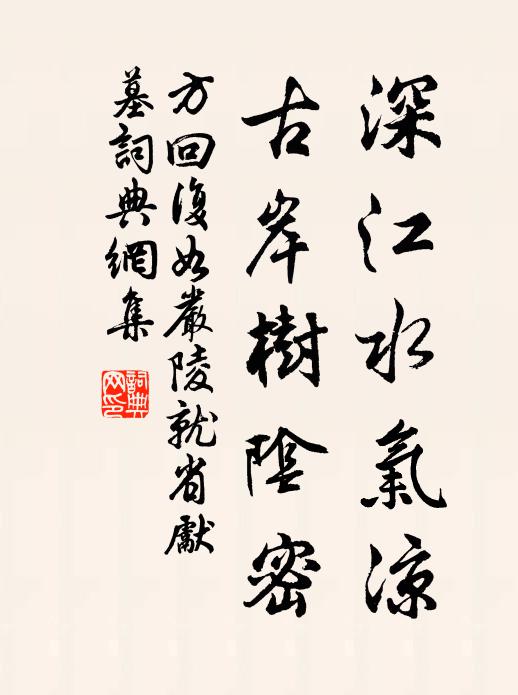 深江水氣涼
古岸樹陰密
方回復如嚴陵就省獻
墓詞典網集
詞典
网印